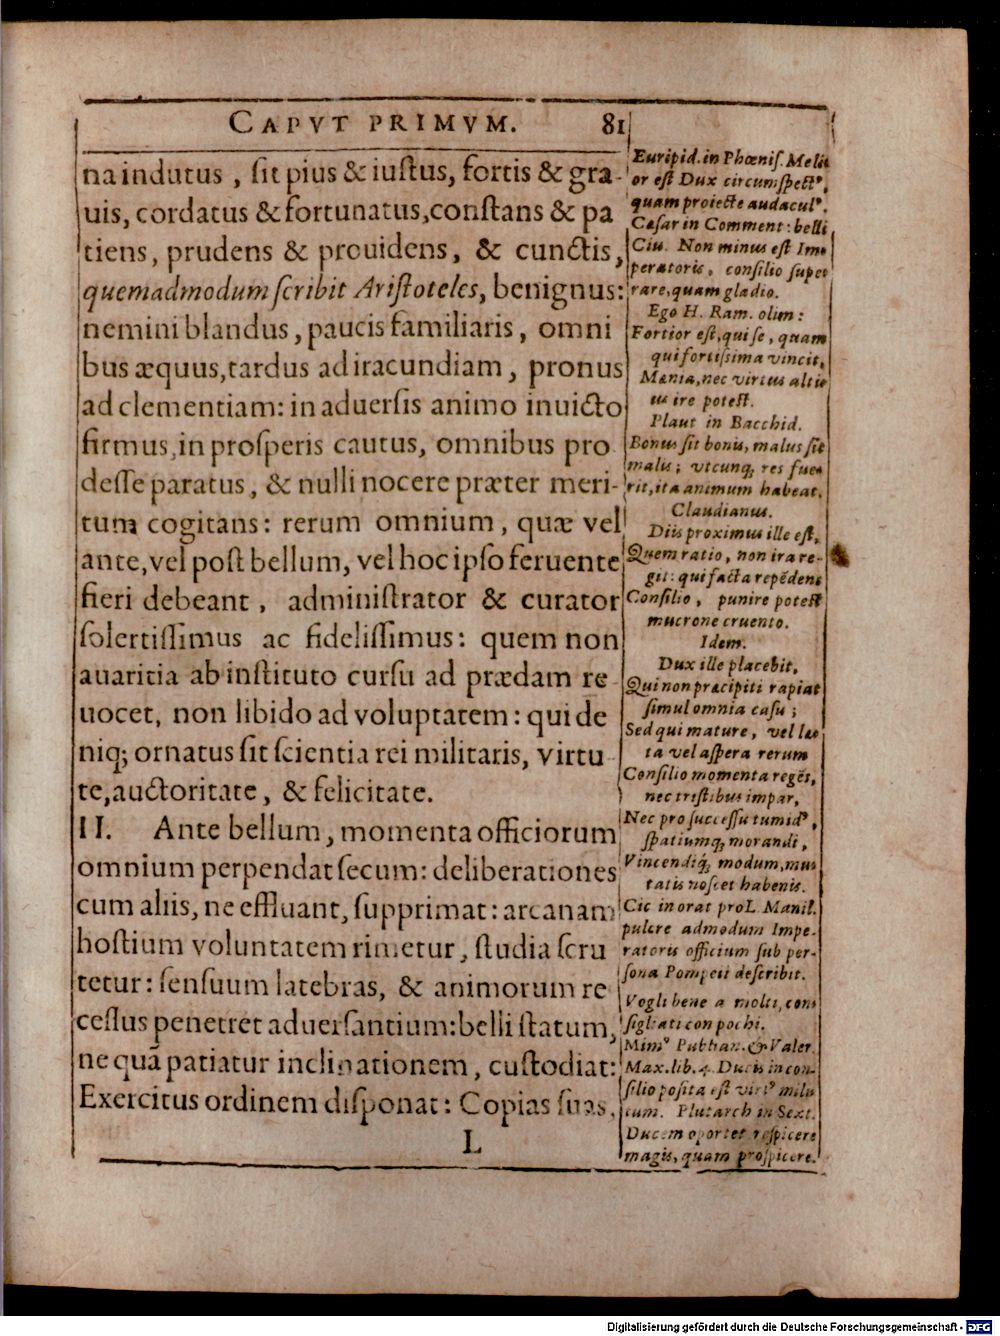 CAPVT PRIMVM. 81
na indutus, ſit pius & iuſtus, fortis & gra-
uis, cordatus & fortunatus, conſtans & pa
tiens, prudens & prouidens, & cunctis,
quemadmodum ſcribit Ariſtoteles, benignus:
nemini blandus, paucis familiaris, omni
bus æquus, tardus ad iracundiam, pronus
ad clementiam: in aduerſis animo inuicto
firmus, in proſperis cautus, omnibus pro
deſſe paratus, & nulli nocere præter meri-
tum cogitans: rerum omnium, quæ vel
ante, vel poſt bellum, vel hoc ipſo feruente
fieri debeant, adminiſtrator & curator
ſolertiſſimus ac fideliſſimus: quem non
auaritia ab inſtituto curſu ad prædam re
uocet, non libido ad voluptatem: qui de
niq; ornatus ſit ſcientia rei militaris, virtu
te, auctoritate, & felicitate.
II. Ante bellum, momenta officiorum
omnium perpendat ſecum: deliberationes
cum aliis, ne effluant, ſupprimat: arcanam
hoſtium voluntatem rimetur, ſtudia ſcru
tetur: ſenſuum latebras, & animorum re
ceſſus penetret aduerſantium: belli ſtatum,
ne quā patiatur inclinationem, cuſtodiat:
Exercitus ordinem diſponat: Copias ſuas,
L
Euripid. in Phœniſ. Meli
or eſt Dux circumſpectꝰ,
quam proiecte audaculꝰ.
Cæſar in Comment: belli
Ciu. Non minus eſt Im-
peratoris, conſilio ſupe-
rare, quam gladio.
Ego H. Ram. olim:
Fortior eſt, qui ſe, quam
qui fortiſsima vincit,
Mænia, nec virtus altiu
us ire poteſt.
Plaut in Bacchid.
Bonus ſit bonis, malus ſit
malis; vtcunq, res fue-
rit, ita animum habeat.
Claudianus.
Diis proximus ille eſt,
Quem ratio, non ira re-
git: qui facta repēdens
Conſilio, punire poteſt
mucrone cruento.
Idem.
Dux ille placebit,
Qui non præcipiti rapiat
ſimul omnia caſu;
Sed qui mature, vel læ-
ta vel aſpera rerum
Conſilio momenta regēs,
nec triſtibus impar,
Nec pro ſucceſſu tumidꝰ,
ſpatiumq, morandi,
Vincendiq, modum, mu-
tatis noſcet habenis.
Cic in orat pro L. Manil.
pulcre admodum Impe-
ratoris officium ſub per-
ſona Pompeii deſcribit.
Vogli bene a molti, con-
ſigliati con pochi.
Mimꝰ Publian. & Valer.
Max. lib. 4. Ducis in con-
ſilio poſita eſt virtꝰ mili-
tum. Plutarch in Sext.
Ducem oportet reſpicere
magis, quam proſpicere.
Digitalisierung gefördert durch die Deutsche Forschungsgemeinschaft - DFG